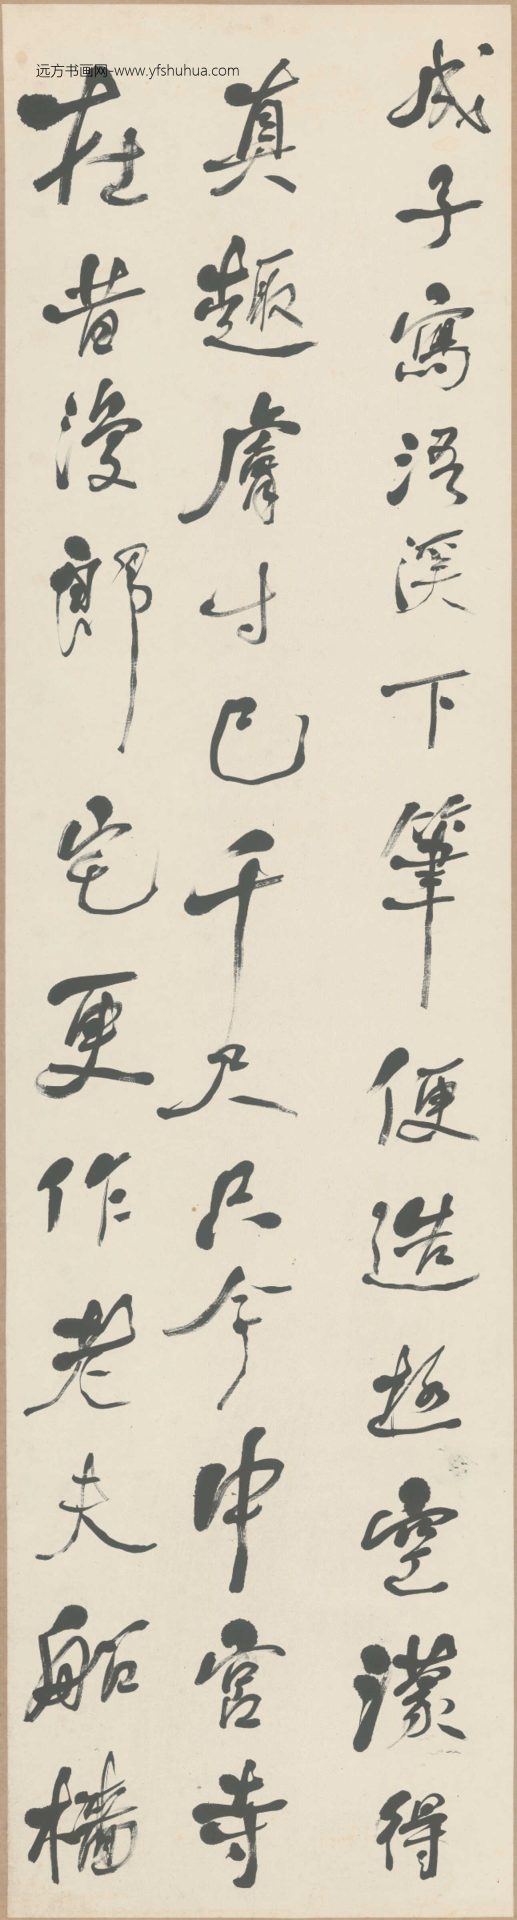 成子寫浯溪下筆便造極空濛得
真趣膚寸已千尺只今中宮寺
在昔漫郎宅更作老夫船檣
远方书画网-www.yfshuhua.com